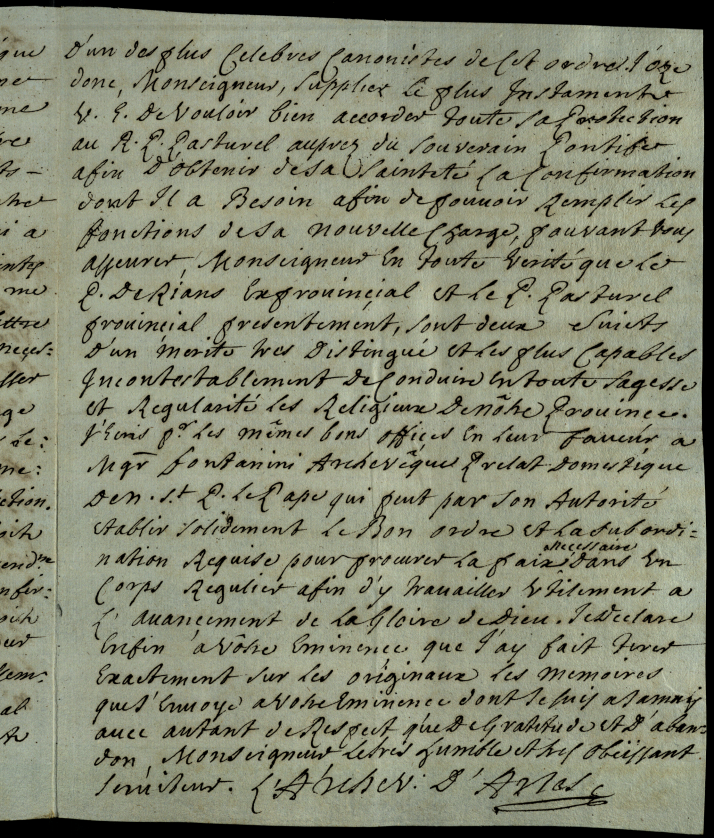 que
me
re
ts -
ntre
i a
intes
me
lettre
neces:
ge
Le:
me:
ction.
oit
nfir:
oit
eur
al
D'un des plus Celebres Canonistes de Cet ordre. J'oze
donc, Monseigneur, Supplier Le plus Instamment
V. E. De Vouloir bien accorder toute Sa Protection
au R. P. Pasturel auprez du Souverain Pontife
afin D'obtenir de Sa Sainteté La Confirmation
dont Il a Besoin afin de pouvoir Remplir Les
fonctions de Sa nouvelle Charge, pouvant Vous
asseurer, Monseigneur En toute Verité que Le
P. De Rians Exprovinçial et Le P. Pasturel
provinçial presentement, sont deux Sujets
D'un mérite tres Distingué et Les plus Capables
Incontestablement De Conduire en toute Sagesse
et Regularité Les Religieux De nôtre Province.
J'Ecris pr. Les mêmes bons offices En Leur faveur a
Mgr fontanini Archevêque Prelat Domestique
De n. st. P. Le Pape qui peut par Son Autorité
etablir Solidement Le Bon ordre et La Subordi=
nation Requise pour procurer La paix necessaire Dans Un
Corps Regulier afin d'y travailler Utilement a
L'auancement de La Gloire de Dieu. Je declare
Enfin a Vôtre Eminence que J'ay fait tirer
Exactement Sur Les originaux Les memoires
que J'Envoye a Votre Eminence dont Je Suis a Jamais
auec autant de Respect que De Gratitude et D'aban=
don, Monseigneur Le tres humble et tres Obeissant
Seruiteur. L'Archev: D'Arlas